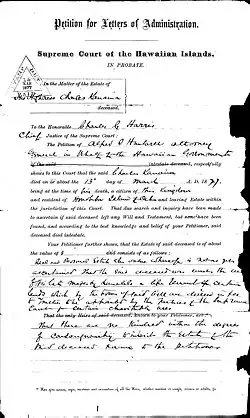 Petition for Letters of Administration.
Supreme Court of the Hawaiian Islands.
IN PROBATE.
In the Matter of the Estate of
His Highness Charles Kanaina
deceased,
To the Honorable Charles C Harris
Chief Justice of the Supreme Court:
The Petition of Alfred S Hartwell attorney
General in behalf of the Hawaiian Government
intestate deceased, respectfully
shows to this Court that the said Charles Kanaina
died on or about the 13th day of March A. D. 1877.
being at the time of his death, a citizen of this Kingdom
and resident of Honolulu Island of Oahu and leaving Estate within
the Jurisdiction of this Court. That due search and inquiry have been made
to ascertain if said deceased left any Will and Testament, but none have been
found, and according to the best knowledge and belief of your Petitioner, said
deceased died intestate.
Your Petitioner further shows, that the Estate of said deceased is of about
the value of $ and consists of as follows:
Real and Personal Estate the value whereof is not as yet
ascertained that the said deceased was under the will
of His late Majesty Lunalilo a life tenant of certain
lands which by the terms of said Will are devised in fee
to Trustees to be appointed by the Justices of the Supreme
Court for certain charitable uses
That the only Heirs of said deceased, known to your Petitioner, are:
That there are no kindred within the degrees
of consanguinity to inherit the Estate of the
said deceased known to the petitioner